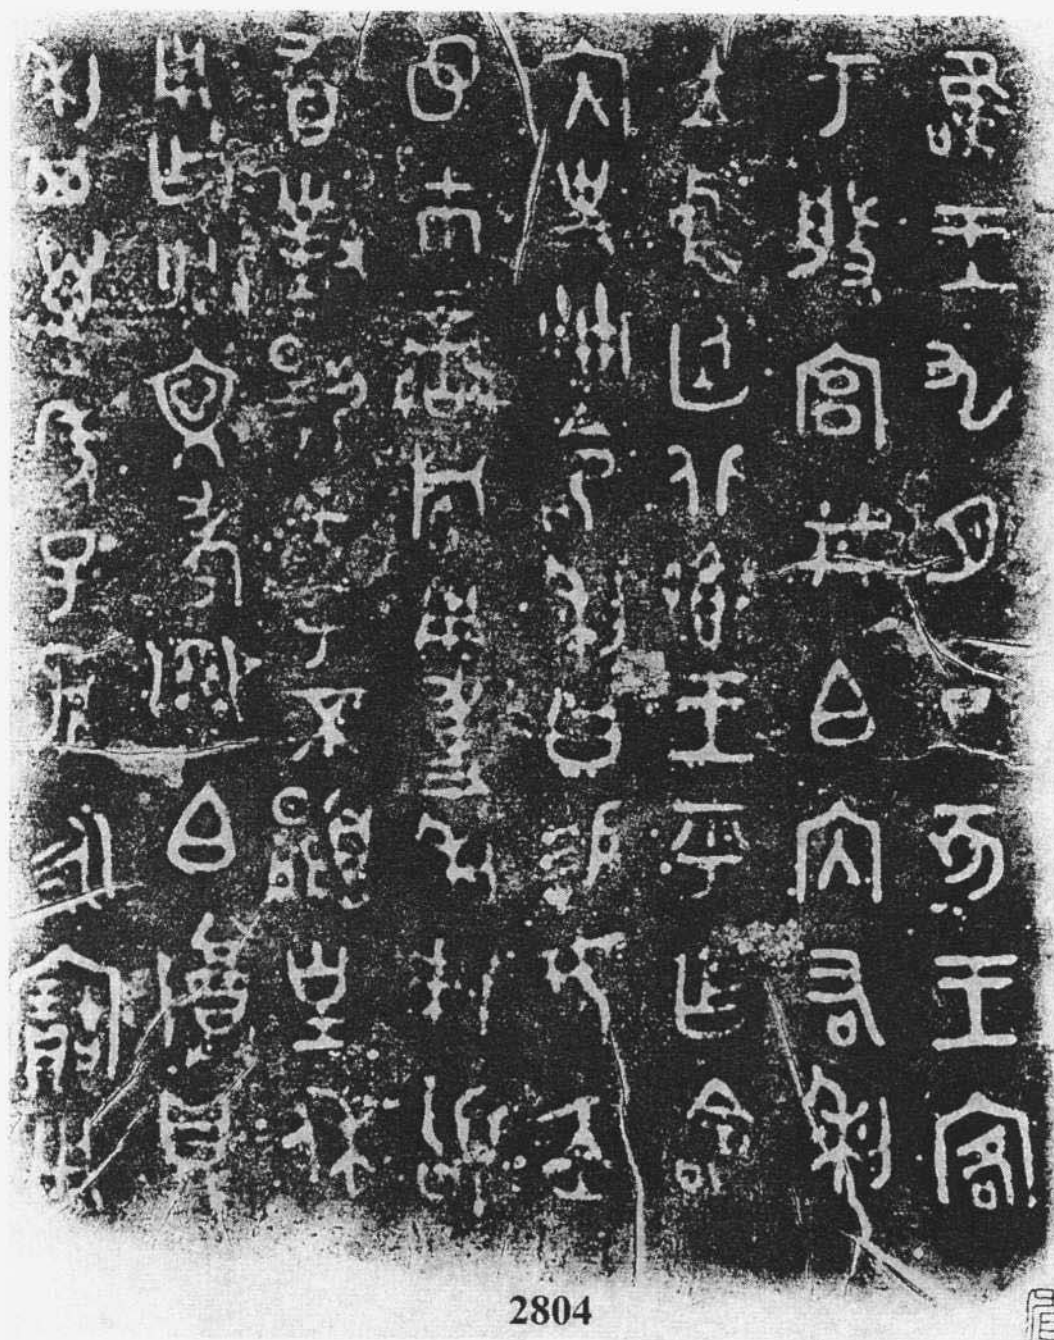 唯王九月丁亥王客
于般宮井白內右利
立中廷北鄉王乎乍命
內史冊命利曰易女赤
⊘巿䜌旂用事利拜𩒨
首對揚天子不顯皇休
用乍朕文考白尊鼎
利其萬年子孫永寶用
2804